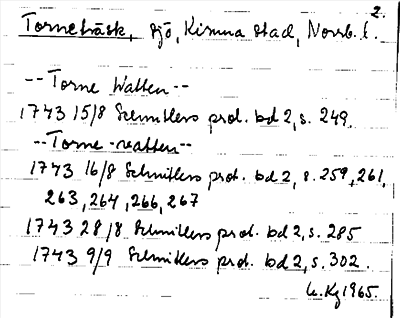 2.
Torneträsk, sjö, Kiruna stad, Norrb. l.
-- Torne Watten --
1743 15/8 Schnitlers prot. bd 2, s. 249.
-- Torne-watten --
1743 16/8 Schnitlers prot. bd 2, s. 259, 261,
263, 264, 266, 267
1743 28/8 Schnitlers prot. bd 2, s. 285
1743 9/9 Schnitlers prot. bd 2, s. 302.
Kg 1965.